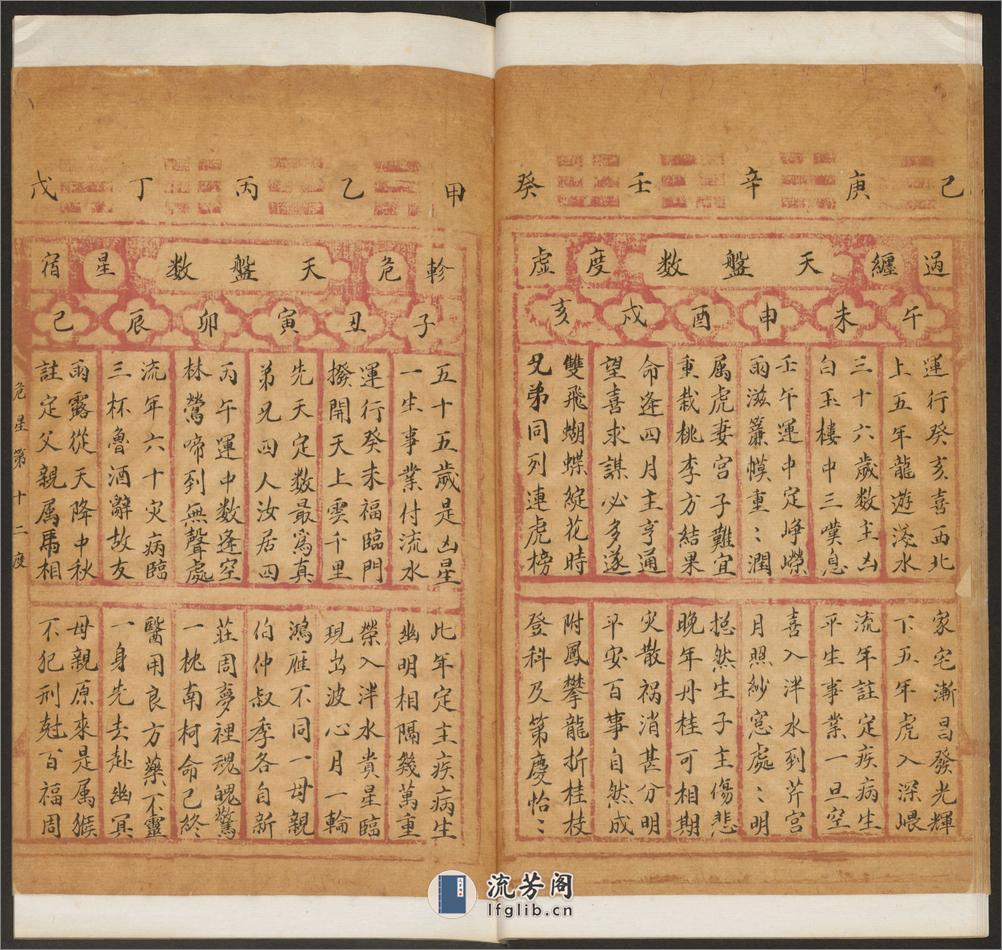 己庚辛壬癸
過纏天盤數度虛
午未申酉戌亥
運行癸亥喜西北
上五年龍遊淺水
三十六歲數主凶
白玉樓中三嘆息
壬午運中定崢嶸
雨滋簾幙重〻潤
属虎妻宮子難宜
重栽桃李方結果
命逢四月主亨通
望喜求謀必多遂
雙飛蝴蝶綻花時
兄弟同列連虎榜
家宅漸昌發光輝
下五年虎入深嵎
流年註定疾病生
平生事業一旦空
喜入泮水到芹宮
月照紗窓處〻明
摠然生子主傷悲
晚年丹桂可相期
灾散禍消甚分明
平安百事自然成
附鳳攀龍折桂枝
登科及第慶怡〻
甲乙丙丁戊
軫危天盤数星宿
子丑寅卯辰巳
五十五歲是凶星
一生事業付流水
運行癸未福臨門
撥開天上雲千里
先天定數最寫真
弟兄四人汝居四
丙午運中数逢空
林鶯啼到無聲處
流年六十灾病臨
三杯魯酒辭故友
雨露從天降中秋
註定父親属馬相
此年定主疾病生
幽明相隔幾萬重
榮入泮水貴星臨
現出波心月一輪
鴻雁不同一母親
伯仲叔季各自新
莊周夢裡魂魄驚
一枕南柯命已終
醫用良方藥不靈
一身先去赴幽冥
母親原來是属猴
不犯刑尅百福周
危星第十二度
流芳阁
lfglib.cn